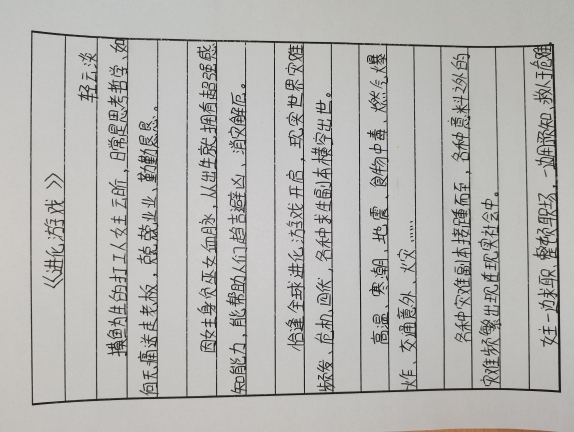 《进化游戏》
轻云淡
摸鱼为生的打工人女主云所，日常是思考哲学、如
何无痛送走老板，兢兢业业、勤勤恳恳。
因女主身负巫女血脉，从出生就拥有超强感
知能力，能帮助人们趋吉避凶、消灾解厄。
恰逢全球进化游戏开启，现实世界灾难
频发、危机四伏，各种求生副本横空出世。
高温、寒潮、地震、食物中毒、燃气爆
炸、交通意外、火灾……
各种灾难副本接踵而至，各种意料之外的
灾难频繁出现在现实社会中。
女主一边求职、整顿职场，一边用预知、救人于危难